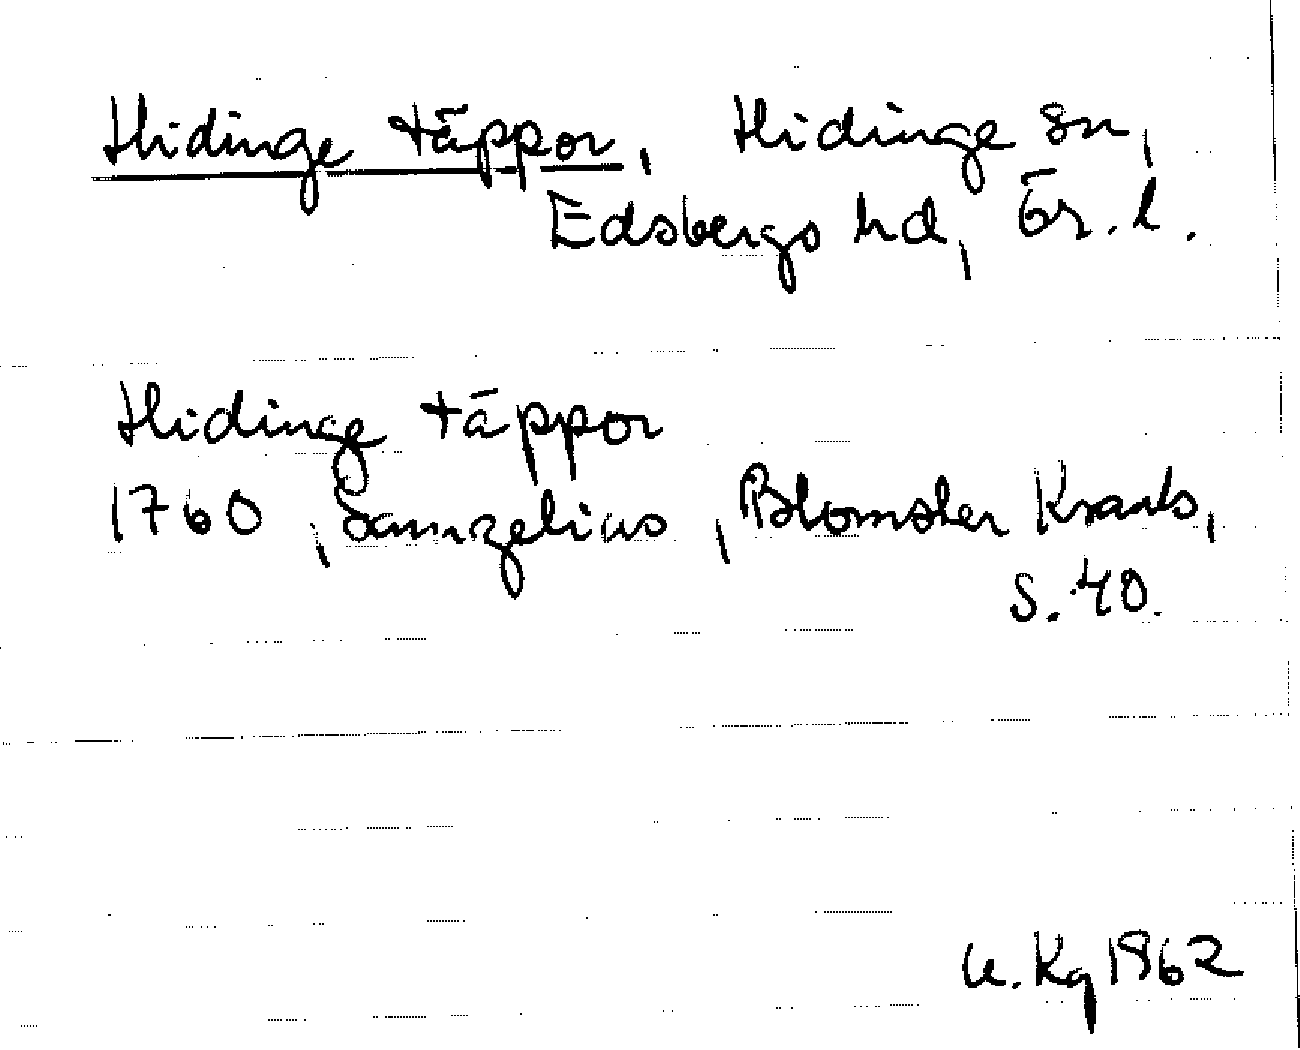 Hidinge täppor, Hidinge sn,
Edsbergs hd, Ör. l.
Hidinge täppor
1760, Samzelius, Blomster Krants,
s. 40.
U. Kg 1962